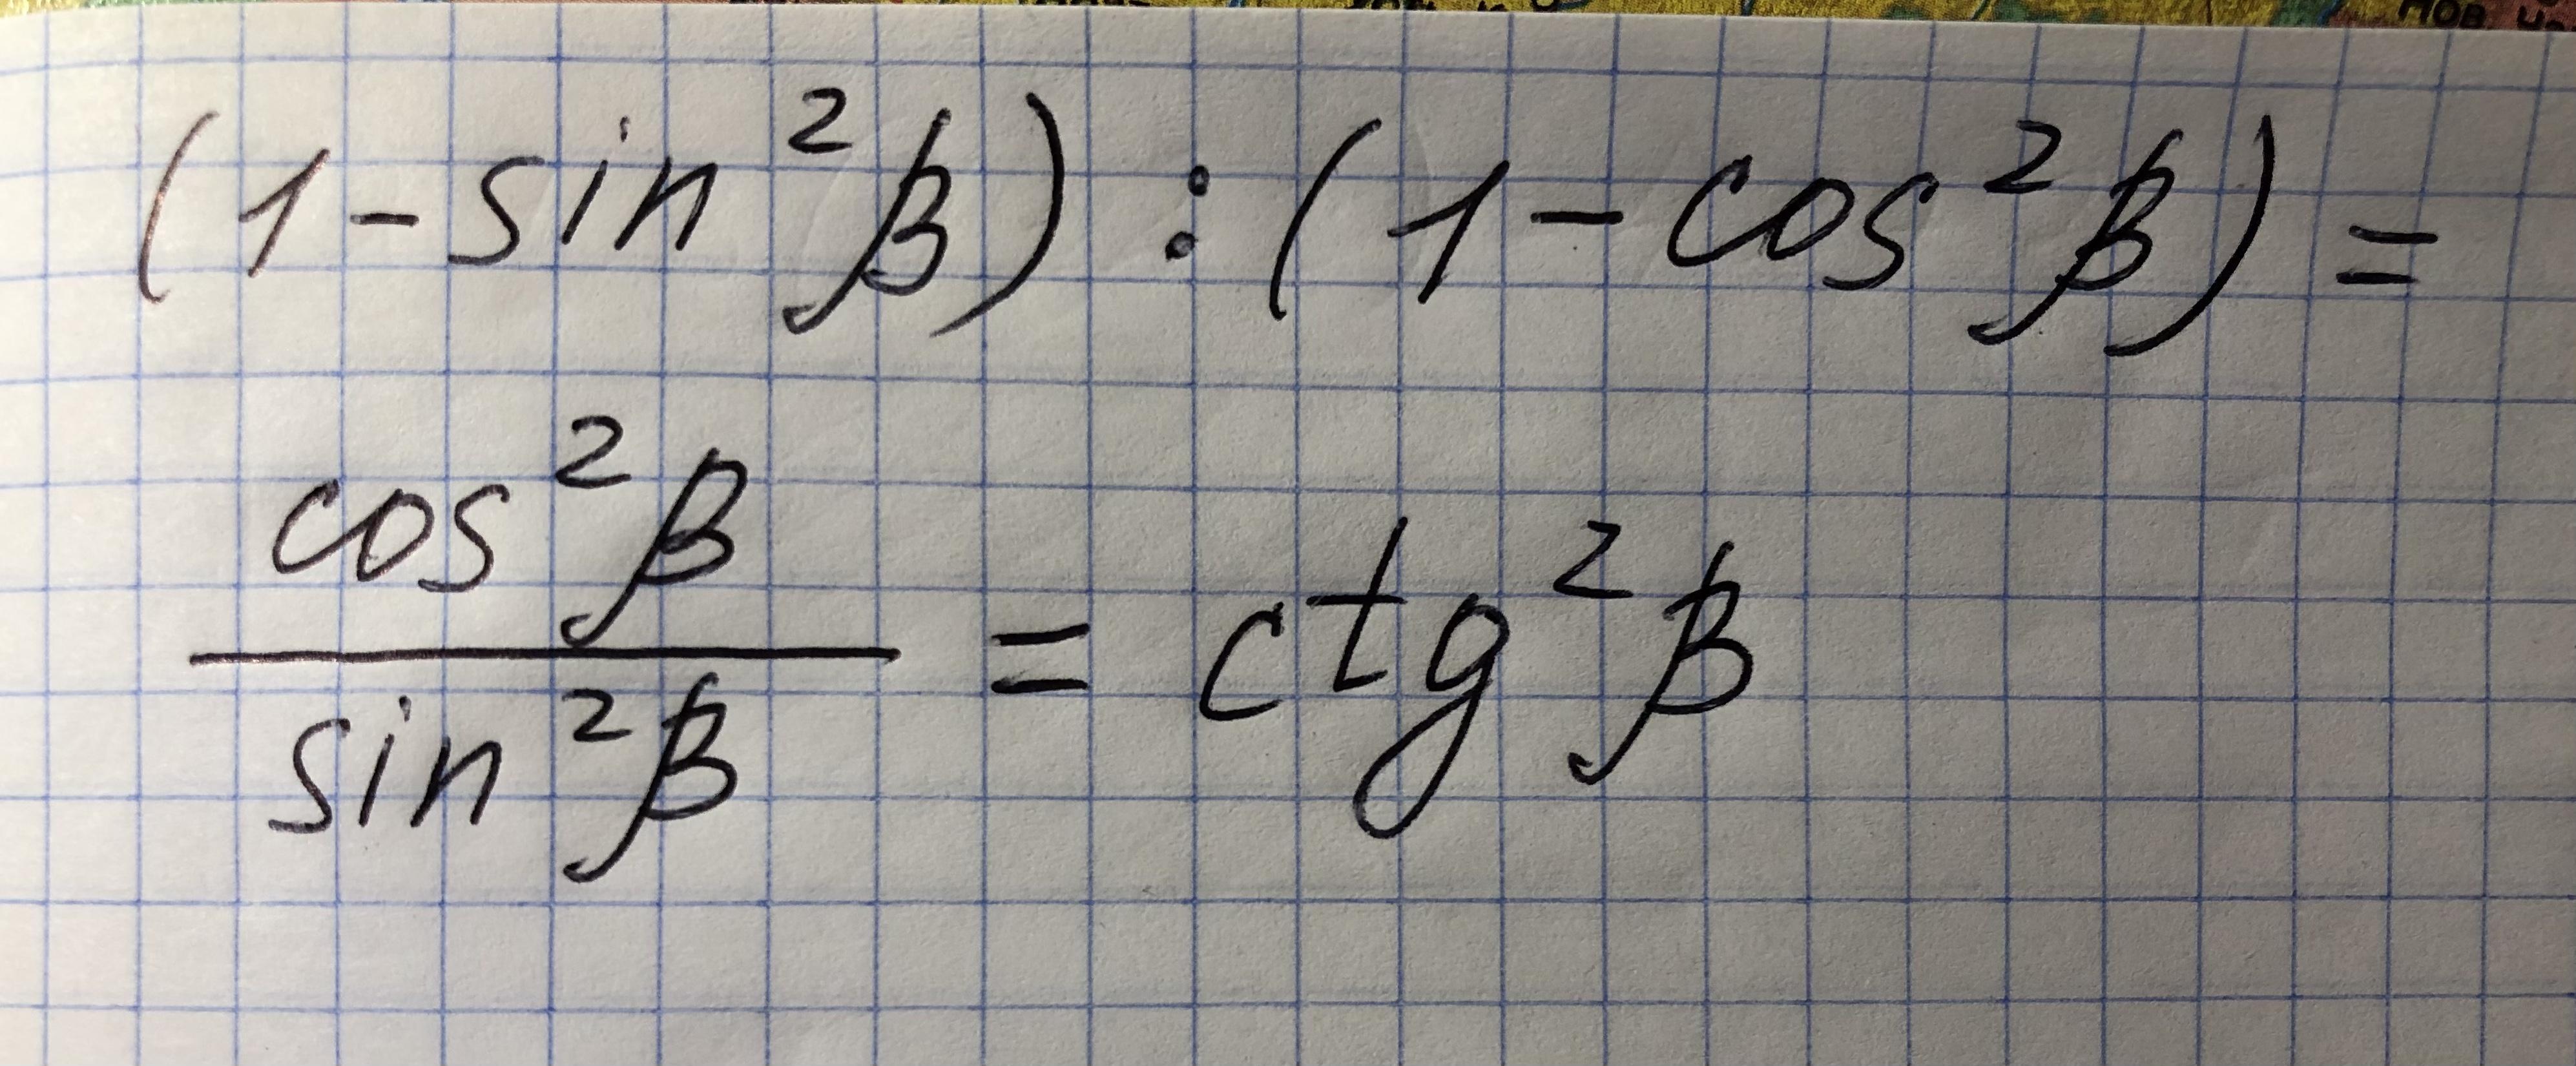 (1-sin²β) : (1-cos²β) =
cos²β / sin²β = ctg²β